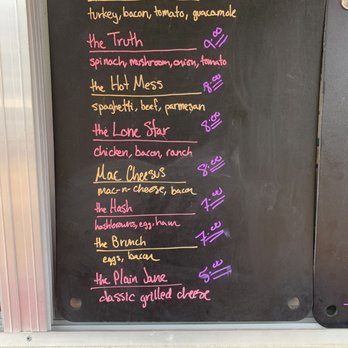 turkey, bacon, tomato, guacamole
the Truth
spinach, mushroom, onion, tomato
the Hot Mess 8.00
spaghetti, beef, parmesan
the Lone Star 8.00
chicken, bacon, ranch
Mac Cheesus 8.00
mac-n-cheese, bacon
the Hash 7.00
hashbrowns, egg, ham
the Brunch 7.00
eggs, bacon
the Plain Jane 5.00
classic grilled cheese